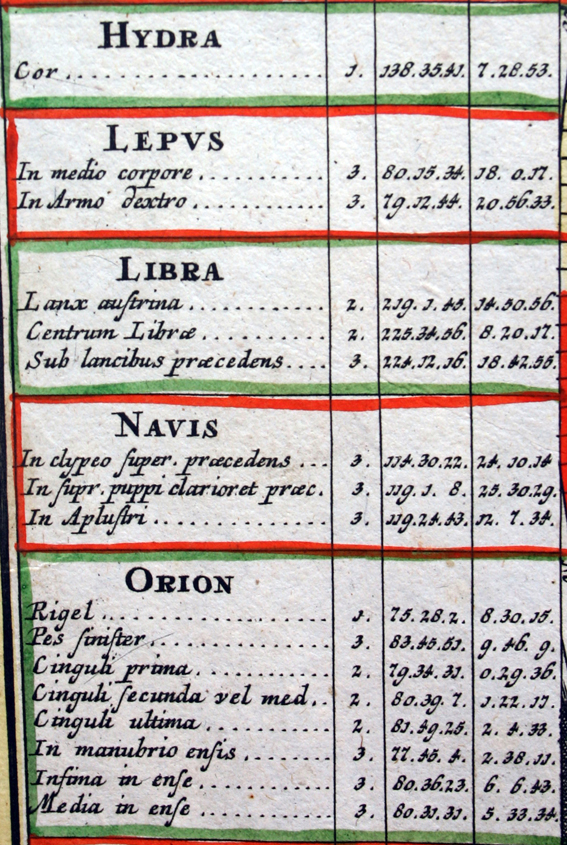 HYDRA
Cor 1. 138.35.41. 7.28.53.
LEPVS
In medio corpore 3. 80.15.34. 18. 0.17.
In Armo dextro 3. 79.12.44. 20.56.33.
LIBRA
Lanx auſtrina 2. 219. 1. 45. 14.30.56.
Centrum Libræ 2. 225.34.56. 8.20.17.
Sub lancibus præcedens 3. 224.12.16. 18.42.55.
NAVIS
In clypeo ſuper. præcedens 3. 114.30.22. 24. 10.14
In ſupr. puppi clarior et præc. 3. 119. 1. 8. 25.30.29.
In Apluſtri 3. 119.24.43. 12. 7. 34.
ORION
Rigel 1. 75.28.2. 8.30.15.
Pes ſiniſter 3. 83.45.51. 9.46. 9.
Cinguli prima 2. 79.34.31. 0.29.36.
Cinguli ſecunda vel med. 2. 80.39. 7. 1.22.17.
Cinguli ultima 2. 81.49.25. 2. 4.33.
In manubrio enſis 3. 77.45. 4. 2.38.11.
Infima in enſe 3. 80.36.23. 6. 6.43.
Media in enſe 3. 80.31.31. 5. 33.34.